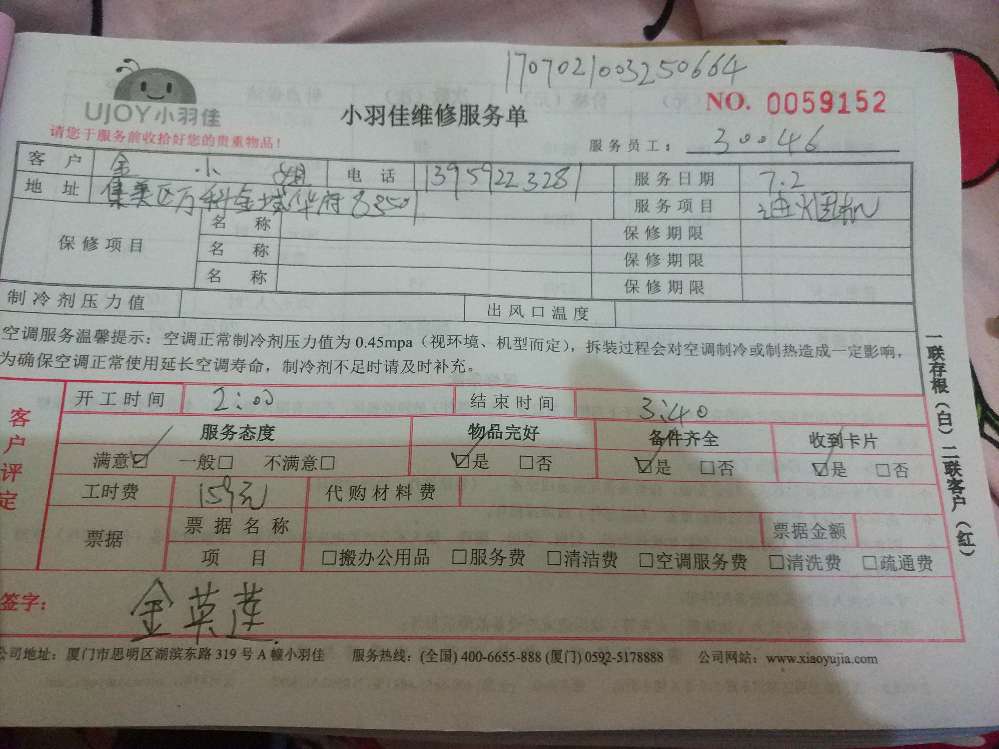 1707021003250664
UJOY小羽佳
小羽佳维修服务单
NO. 0059152
请您于服务前收拾好您的贵重物品!
服务员工: 30046
客户 金小姐 电话 13959223281 服务日期 7.2
地址 集美区万科金域华府83501 服务项目 油烟机
保修项目 名称 保修期限
名称 保修期限
名称 保修期限
制冷剂压力值 出风口温度
空调服务温馨提示：空调正常制冷剂压力值为 0.45mpa（视环境、机型而定），拆装过程会对空调制冷或制热造成一定影响，
为确保空调正常使用延长空调寿命，制冷剂不足时请及时补充。
客户评定
开工时间 2:00 结束时间 3:40
服务态度 物品完好 备件齐全 收到卡片
满意☑ 一般□ 不满意□ ☑是 □否 ☑是 □否 ☑是 □否
工时费 159元 代购材料费
票据 票据名称 票据金额
项目 □搬办公用品 □服务费 □清洁费 □空调服务费 □清洗费 □疏通费
签字: 金英莲
公司地址：厦门市思明区湖滨东路 319 号 A 幢小羽佳 服务热线：(全国) 400-6655-888 (厦门) 0592-5178888 公司网站：www.xiaoyujia.com
一联存根（白）二联客户（红）